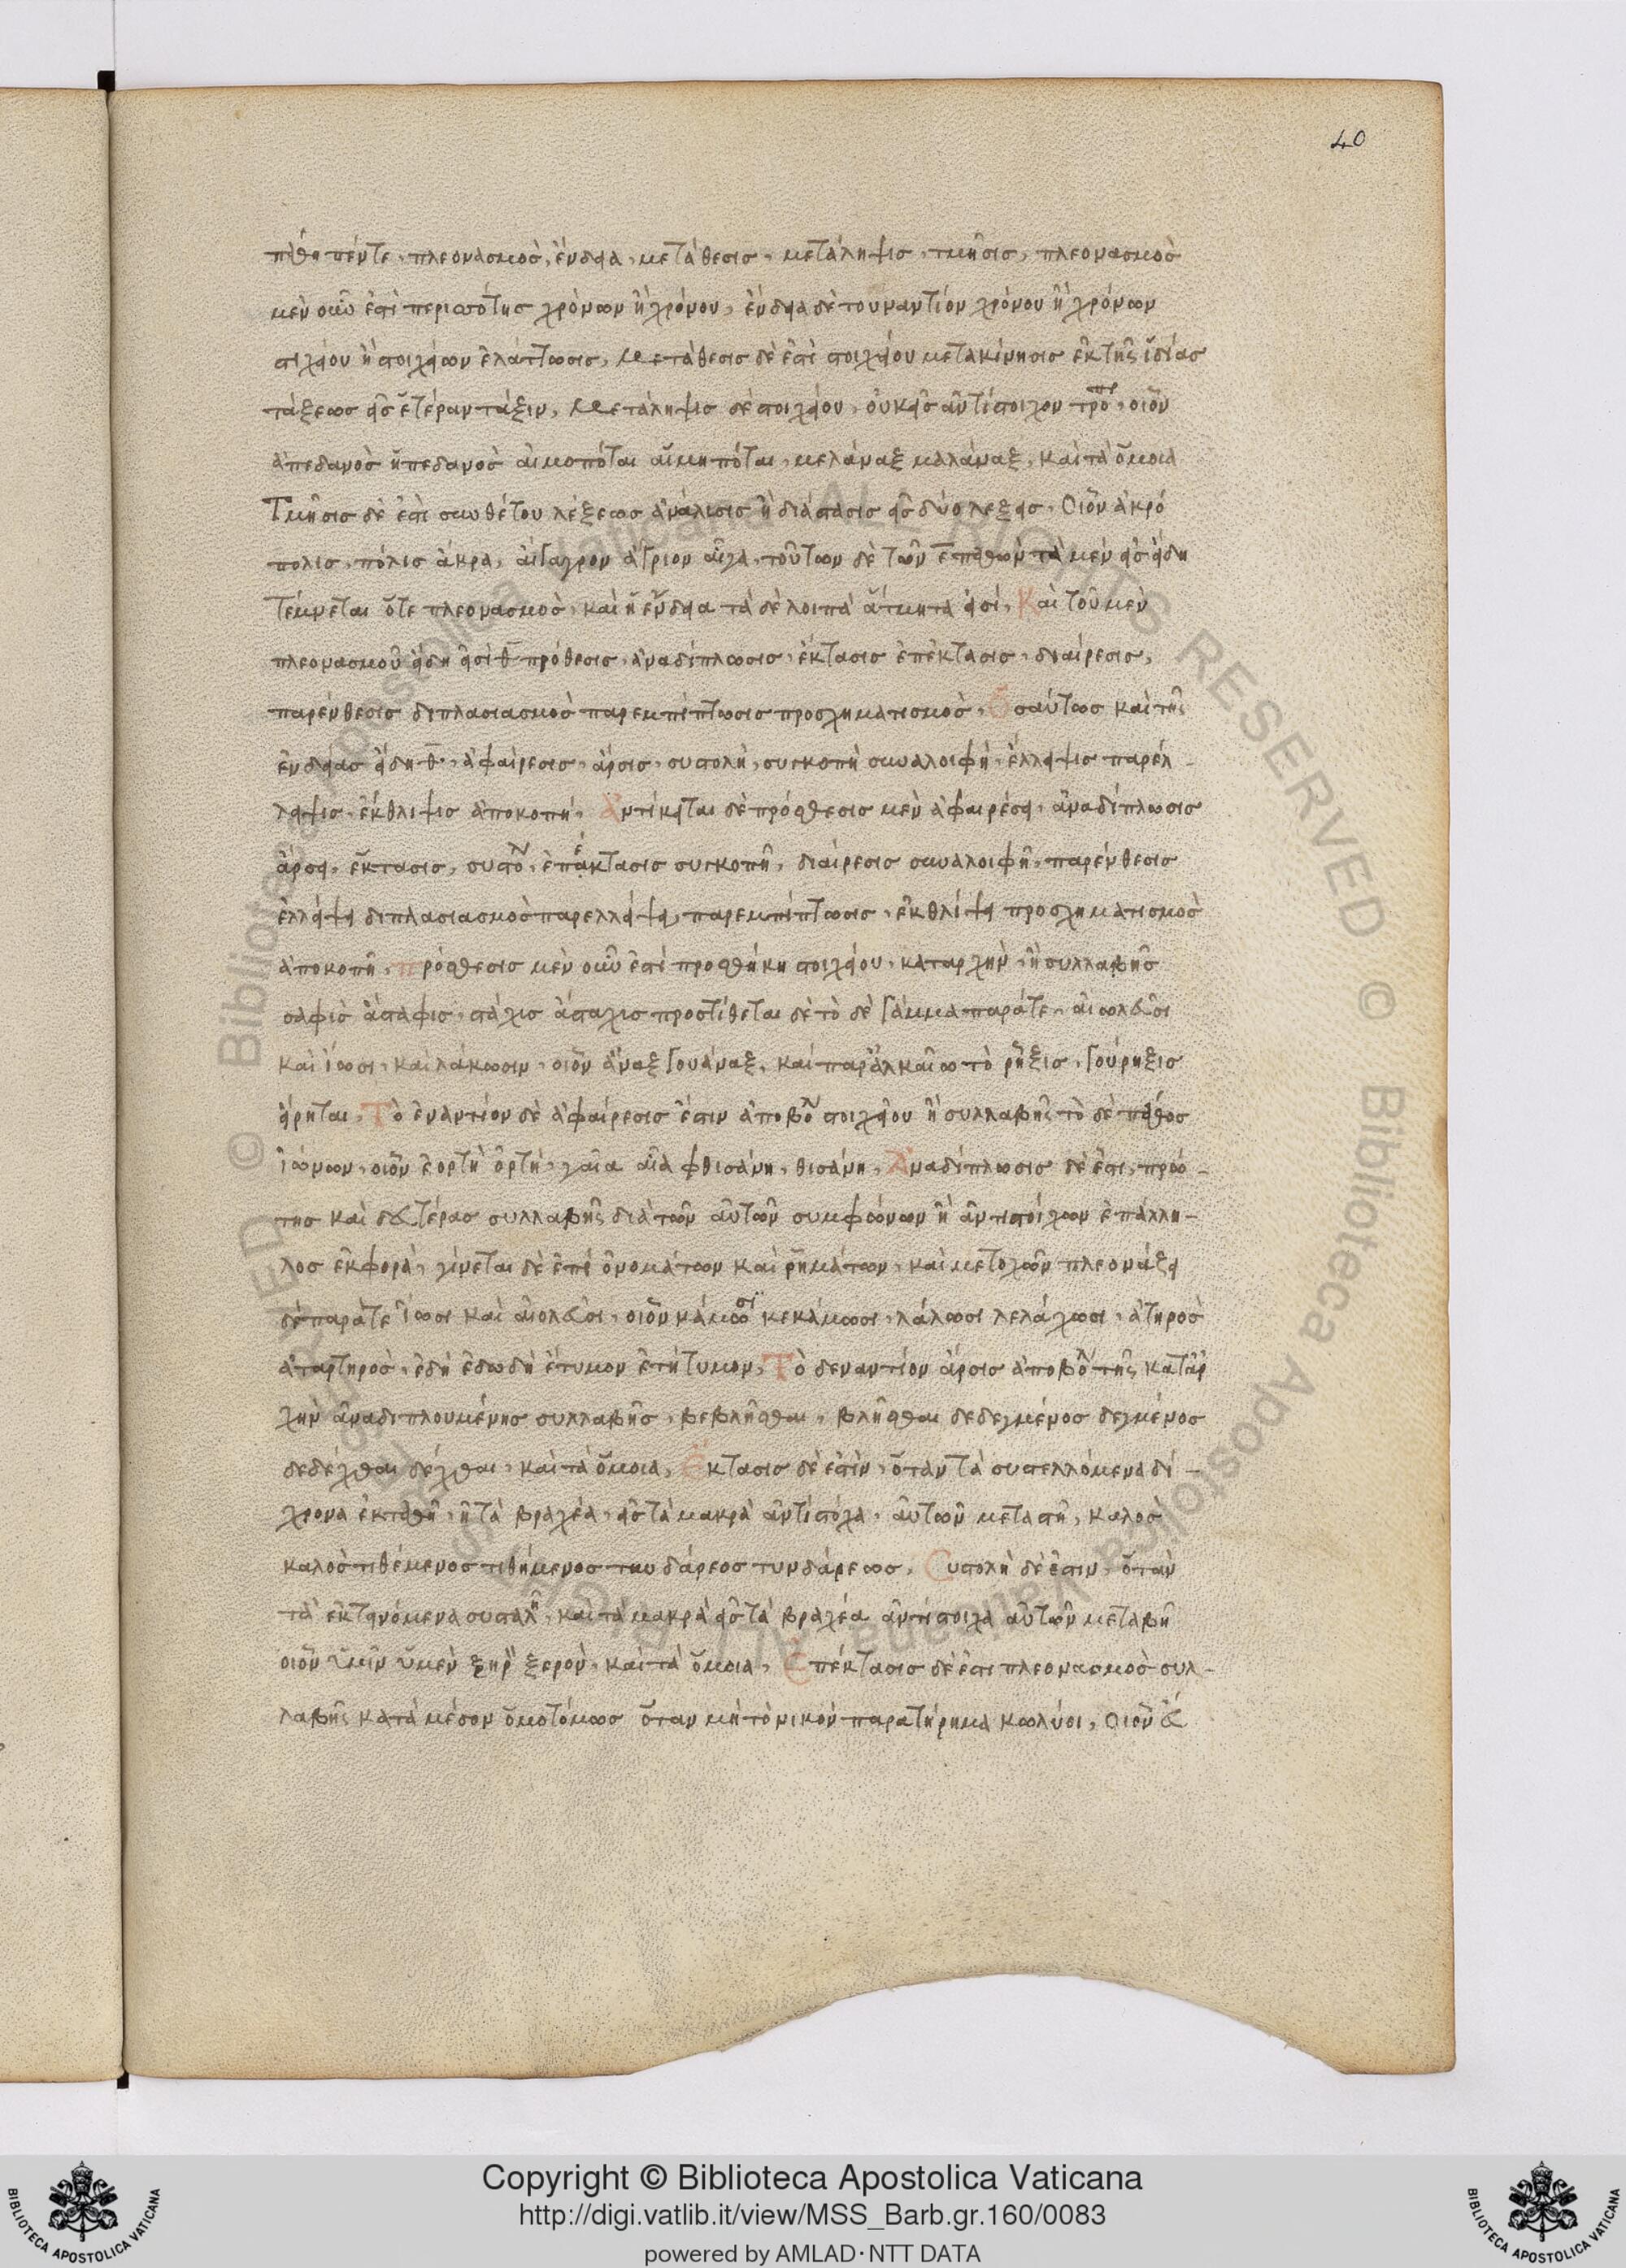 40
πάθη πέντε, πλεονασμὸς, ἔνδεια, μετάθεσις, μετάληψις, τμῆσις, πλεονασμὸς
μὲν οὖν ἐστὶ περισσότης χρόνων ἢ χρόνου, ἔνδεια δὲ τουναντίον χρόνου ἢ χρόνων
στιχείου ἢ στοιχείων ἐλάττωσις, Μετάθεσις δὲ ἐστὶ στοιχείου μετακίνησις ἐκ τῆς ἰδίας
τάξεως εἰς ἑτέραν τάξιν, Μετάληψις δὲ στοιχείου, οὐκ εἰς ἀντίστοιχον τρο π, οἷον
ἀπεδανὸς ἠπεδανὸς αἱμοπόται αἱμηπόται, μελάναξ μαλάναξ, καὶ τὰ ὅμοια
Τμῆσις δὲ ἐστὶ συνθέτου λέξεως ἀνάλισις ἢ διάστασις εἰς δύο λέξεις, Οἷον ἀκρό
πολις, πόλις ἄκρα, αἴγαγρον ἄγριον αἶγα, τούτων δὲ τῶν ε παθῶν τὰ μὲν εἰς εἴδη
τέμνεται ὅτε πλεονασμὸς, καὶ ἡ ἔνδεια τὰ δὲ λοιπὰ ἄτμητα εἰσὶ, Καὶ τοῦ μὲν
πλεονασμοῦ εἴδη εἰσὶ θ πρόθεσις, ἀναδίπλωσις, ἔκτασις ἐπέκτασις, διαίρεσις,
παρένθεσις διπλασιασμὸς παρεμπίπτωσις προσχηματισμὸς, Ὡσαύτως καὶ τῆς
ἐνδείας εἴδη θ, ἀφαίρεσις, ἄρσις, συστολὴ, συγκοπὴ συναλοιφὴ, ἔλλειψις παρέλ-
λειψις, ἔκθλιψις ἀποκοπὴ, Ἀντίκειται δὲ πρόσθεσις μὲν ἀφαιρέσει, ἀναδίπλωσις
ἄρσει, ἔκτασις, συστο λ, ἐπέκτασις συγκοπῆ, διαίρεσις συναλοιφῆ, παρένθεσις
ἐλλείψει διπλασιασμὸς παρελλείψει, παρεμπίπτωσις, ἐκθλίψει προσχηματισμὸς
ἀποκοπῆ, πρόσθεσις μὲν οὖν ἐστὶ προσθήκη στοιχείου, καταρχὴν, ἢ συλλαβῆς
σαφὶς ἀσταφις, στάχις ἄσταχις προστίθεται δὲ τὸ δὲ γάμμα παράτε, αἰωλεῦσι
καὶ ἴωσι, καὶ λάκωσιν, οἷον ἄναξ γουάναξ, καὶ παρ' ἀλκαίω τὸ ῥῆξις, γούρηξις
εἴρηται, Τὸ ἐνάντιον δὲ ἀφαίρεσις ἔστιν ἀποβο λ στοιχείου ἢ συλλαβῆς τὸ δὲ πάθος
ἰώνων, οἷον ἑορτὴ ὁρτὴ, γαῖα αἶα φθισάνη, θισάνη, Ἀναδίπλωσις δὲ ἐστι, πρώ-
της καὶ δευτέρας συλλαβῆς διὰ τῶν αὐτῶν συμφώνων ἢ ἀντιστοίχων ἐπάλλη-
λος ἐκφορὰ, γίνεται δὲ ἐπὶ ὀνομάτων καὶ ῥημάτων, καὶ μετοχῶν πλεονάζει
δὲ παράτε ἴωσι καὶ αἰολεῦσι, οἷον κάμωσι κεκάμωσι, λάχωσι λελάχωσι, ἀτηρὸς
ἀταρτηρὸς, ἐδὴ ἐδωδὴ ἔτυμον ἐτήτυμον, Τὸ δεναντίον ἄρσις ἀποβο λ τῆς κατάρ
χὴν ἀναδιπλουμένης συλλαβῆς, βεβλῆσθαι, βλῆσθαι δεδεγμένος δεγμένος
δεδέχθαι δέχθαι, καὶ τὰ ὅμοια, Ἔκτασις δὲ ἐστὶν, ὅταν τὰ συστελλόμενα δί-
χρονα ἐκταθῆ, ἢ τὰ βραχέα, εἰς τὰ μακρὰ ἀντίστοχα, αὐτῶν μεταστῆ, καλὸς
καλὸς τιθέμενος τιθήμενος τυνδάρεος τυνδάρεως, Συστολὴ δὲ ἐστιν, ὅταν
τὰ ἐκτεινόμενα συσταλῆ, καὶ τὰ μακρὰ εἰς τὰ βραχέα ἀντίστοιχα αὐτῶν μεταβῆ
οἷον ὑμὶν ὑμὲν ξηρὸ ξερὸν, καὶ τὰ ὅμοια, Ἐπέκτασις δὲ ἐστι πλεονασμὸς συλ-
λαβῆς κατὰ μέσον ὁμοτόμως ὅταν μὴ τὸ νικὸν παρατήρημα κωλύσι, Οἷον εὖ
Copyright © Biblioteca Apostolica Vaticana
http://digi.vatlib.it/view/MSS_Barb.gr.160/0083
powered by AMLAD·NTT DATA